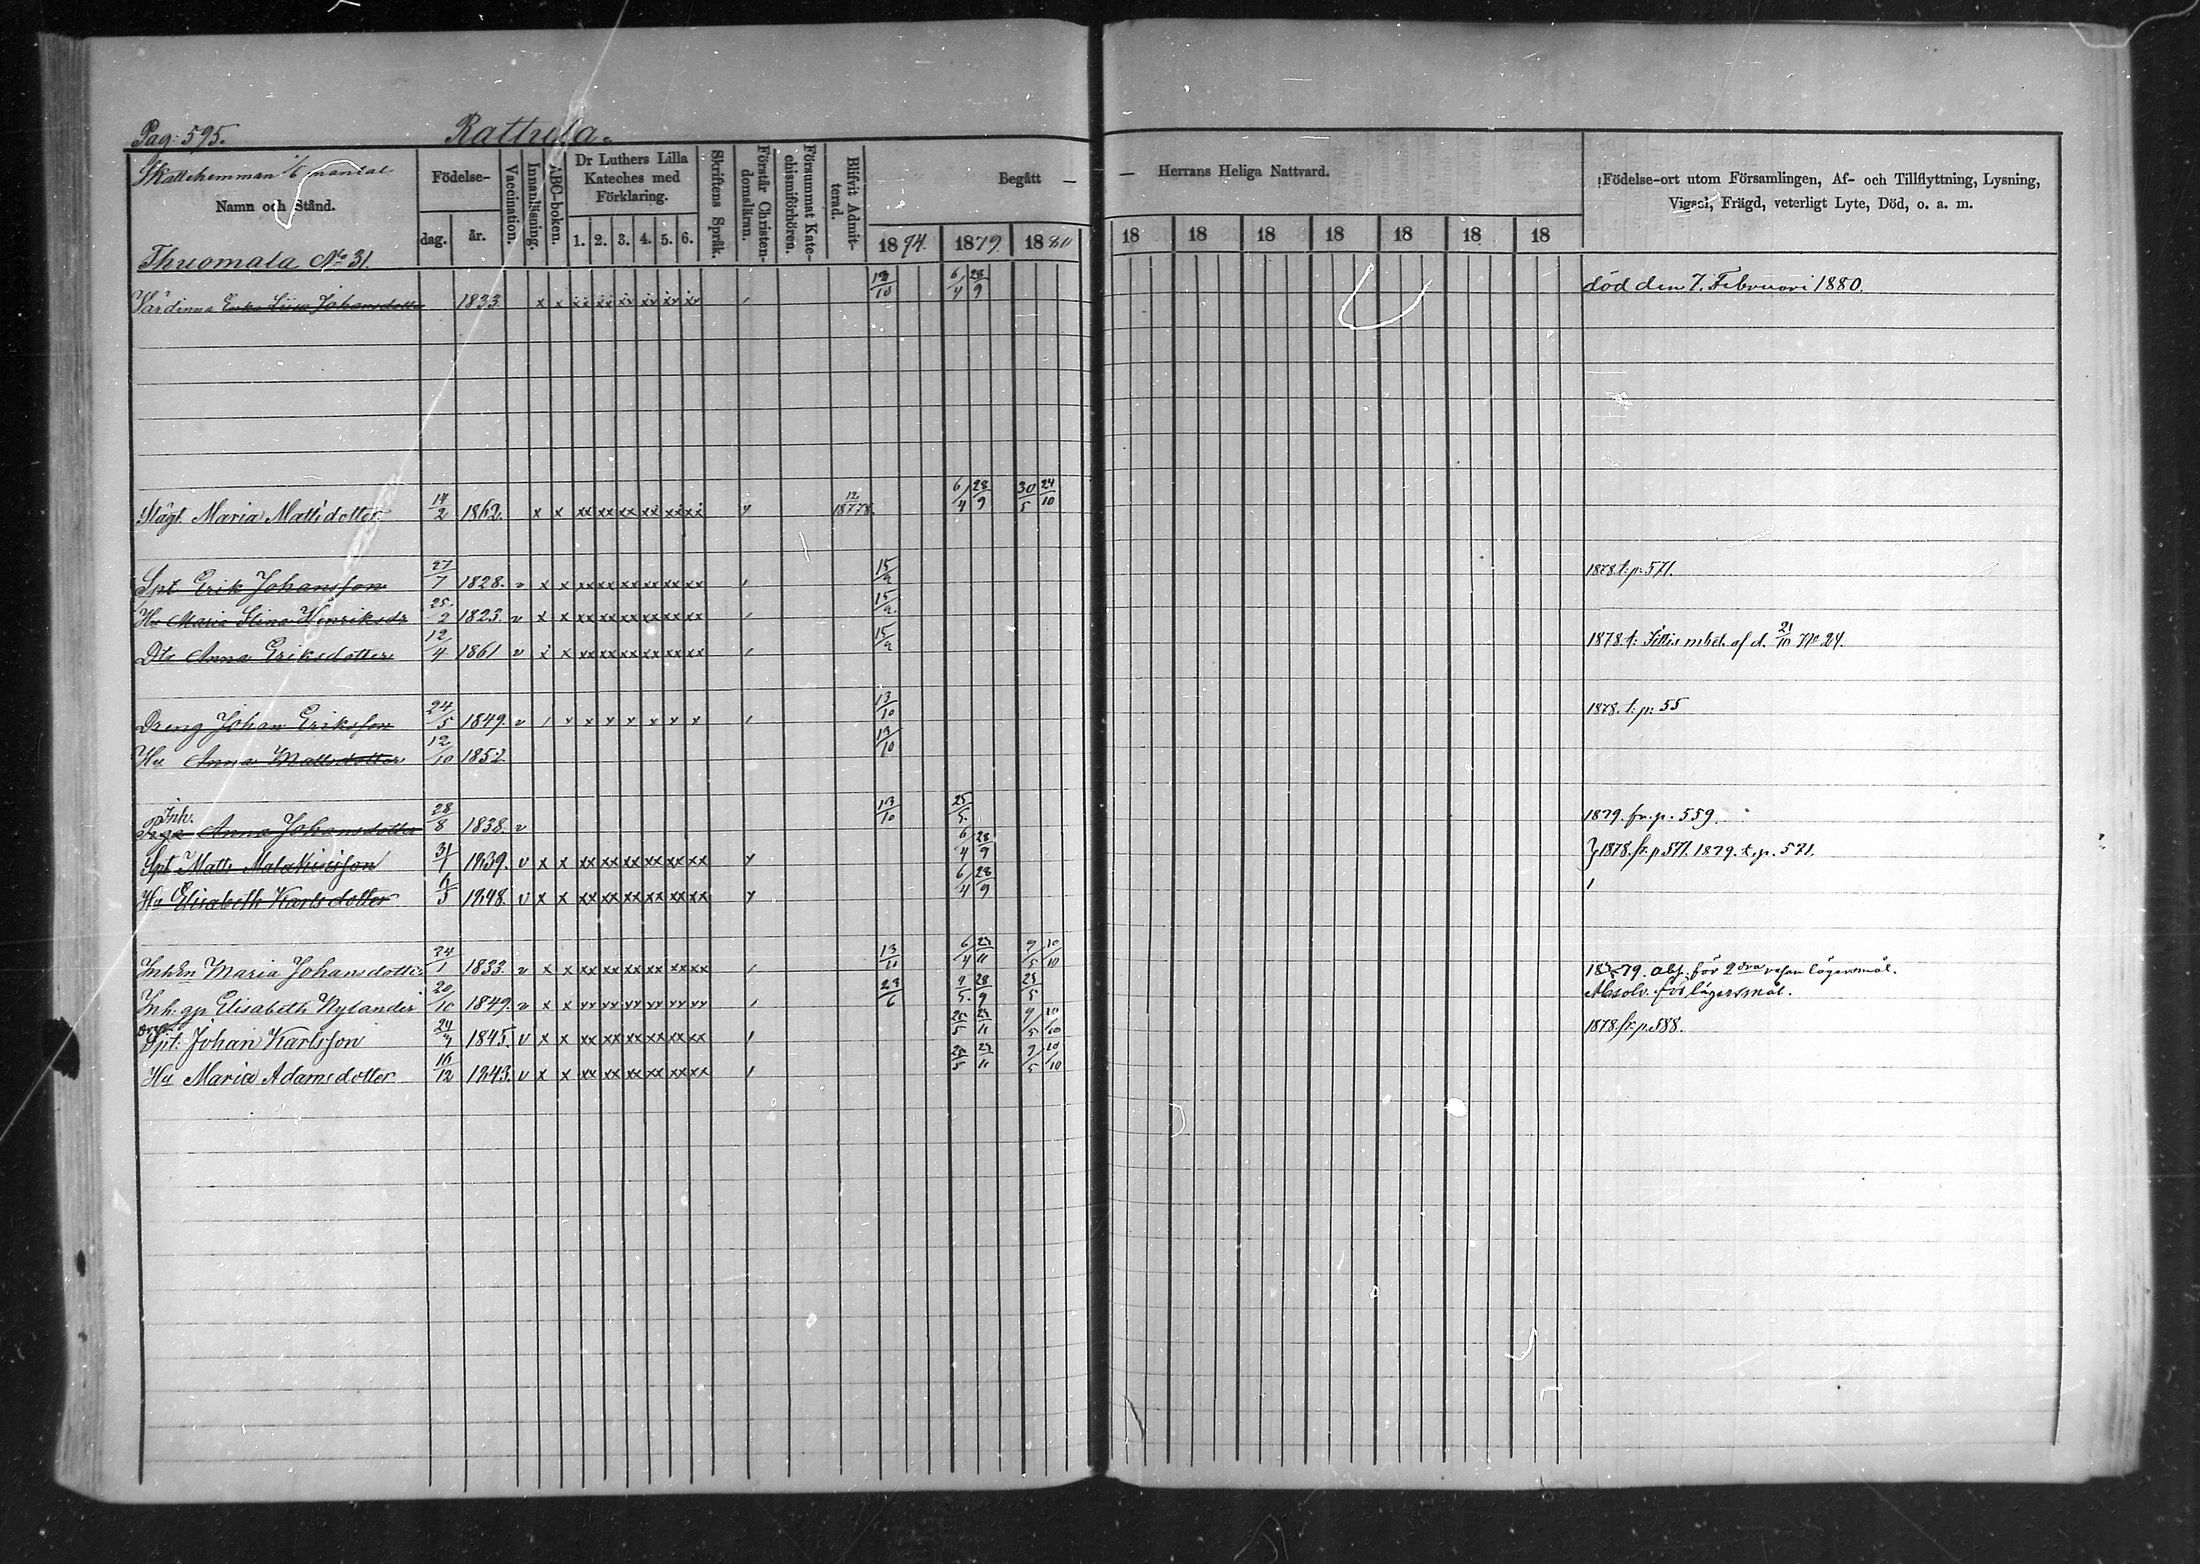 Pag: 595. Rattula.
Skattehemman 1/6 mantal
Namn och Stånd. Födelse- dag. år. Vaccination. Innanläsning. ABC-boken. Dr Luthers Lilla Kateches med Förklaring. 1. 2. 3. 4. 5. 6. Skriftens Språk. Förstår Christendomsläran. Försummat Katechismiförhören. Blifvit Admitterad. Begått — — Herrans Heliga Nattvard. Födelse-ort utom Församlingen, Af- och Tillflyttning, Lysning, Vigsel, Frägd, veterligt Lyte, Död, o. a. m.
1879 1880 18 18 18 18 18 18 18
Thuomala No 31.
Värdinna Lisa Johansdotter 1833. x x xx xx xx xx xx xx 13/10 6/4 28/9 död den 7. Februari 1880.
Maria Mattsdotter 14/2 1862. x x xx xx xx xx xx xx 6/4 28/9 30/5 24/10
Spt Erik Johansson 27/7 1828. v x x xx xx xx xx xx xx 15/9 1878. t. p. 571.
Hu Maria Stina Henriksdr 25/2 1823. v x x xx xx xx xx xx xx 15/9
Dtr Anna Eriksdotter 12/4 1861 v x x xx xx xx xx xx xx 15/9 1878. t: mbet. af d. 21/10 No 24.
Dreng Johan Eriksson 24/5 1849. v / x x x x x x x 13/10 1878. t: p: 55
Hu Anna Mattsdotter 12/10 1852. 13/10
Inh.
Anna Johansdotter 28/8 1838. v 13/10 25/5 1879. fr. p. 559.
Spt Matts Malakiisson 31/1 1839. v x x xx xx xx xx xx xx 6/4 28/9 1878. fr. p 571. 1879. t. p. 571.
Hu Elisabeth Karlsdotter 1848. v x x xx xx xx xx xx xx 6/4 28/9
Inh. Maria Johansdotter 24/1 1833. v x x xx xx xx xx xx xx 6/4 23/11 9/5 10/10 79. abs. för 2dra resan lägersmål.
Inh. gp Elisabeth Nylander 20/10 1849. v x x xx xx xx xx xx xx 23/6 28/9 Absolv. för lägersmål.
Spt. Johan Karlsson 1845. v x x xx xx xx xx xx xx 25/5 23/11 9/5 10/10 1878. fr. p. 588.
Hu Maria Adamsdotter 16/12 1843. v x x xx xx xx xx xx xx 25/5 23/11 9/5 10/10